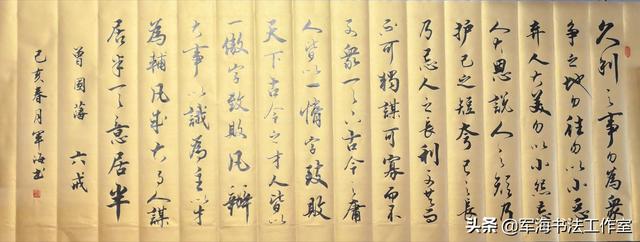 久利之事勿為衆
争之地勿往勿以小惡
弃人大美勿以小怨忘
人大恩說人之短乃
护己之短夸己之長
乃忌人之長利可共而
不可獨謀可寡而不
可衆天下古今之庸
人皆以一惰字致敗
天下古今之才人皆以
一傲字致敗凡辦
大事以識為主以才
為輔凡成大事人謀
居半天意居半
曾國藩 六戒
己亥春月軍海書
头条 @军海书法工作室